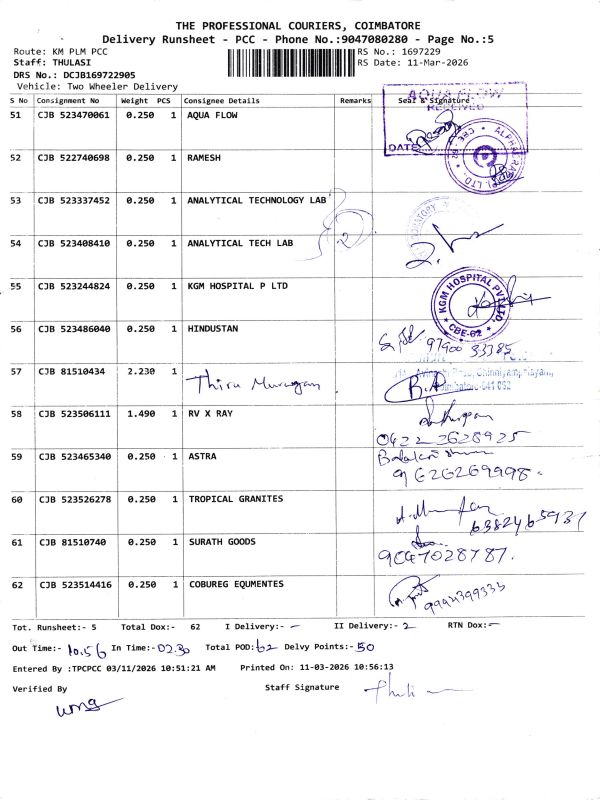 THE PROFESSIONAL COURIERS, COIMBATORE
Delivery Runsheet - PCC - Phone No.:9047080280 - Page No.:5
Route: KM PLM PCC RS No.: 1697229
Staff: THULASI RS Date: 11-Mar-2026
DRS No.: DCJB169722905
Vehicle: Two Wheeler Delivery
S No Consignment No Weight PCS Consignee Details Remarks Seal & Signature
AQUA FLOW
RECEIVED
51 CJB 523470061 0.250 1 AQUA FLOW
DATE
52 CJB 522740698 0.250 1 RAMESH
53 CJB 523337452 0.250 1 ANALYTICAL TECHNOLOGY LAB
54 CJB 523408410 0.250 1 ANALYTICAL TECH LAB
2
55 CJB 523244824 0.250 1 KGM HOSPITAL P LTD
KGM HOSPITAL PVT LTD
CBE-62
56 CJB 523486040 0.250 1 HINDUSTAN
97900 33385
57 CJB 81510434 2.230 1 Thiru Murugan
58 CJB 523506111 1.490 1 RV X RAY
0422 2628925
59 CJB 523465340 0.250 1 ASTRA
9626269998
60 CJB 523526278 0.250 1 TROPICAL GRANITES
6382465937
61 CJB 81510740 0.250 1 SURATH GOODS
9047028787.
62 CJB 523514416 0.250 1 COBUREG EQUMENTES
9994399333
Tot. Runsheet:- 5 Total Dox:- 62 I Delivery:- - II Delivery:- 2 RTN Dox:-
Out Time:- 10.56 In Time:- 02.30 Total POD: 62 Delvy Points:- 50
Entered By :TPCPCC 03/11/2026 10:51:21 AM Printed On: 11-03-2026 10:56:13
Verified By Staff Signature